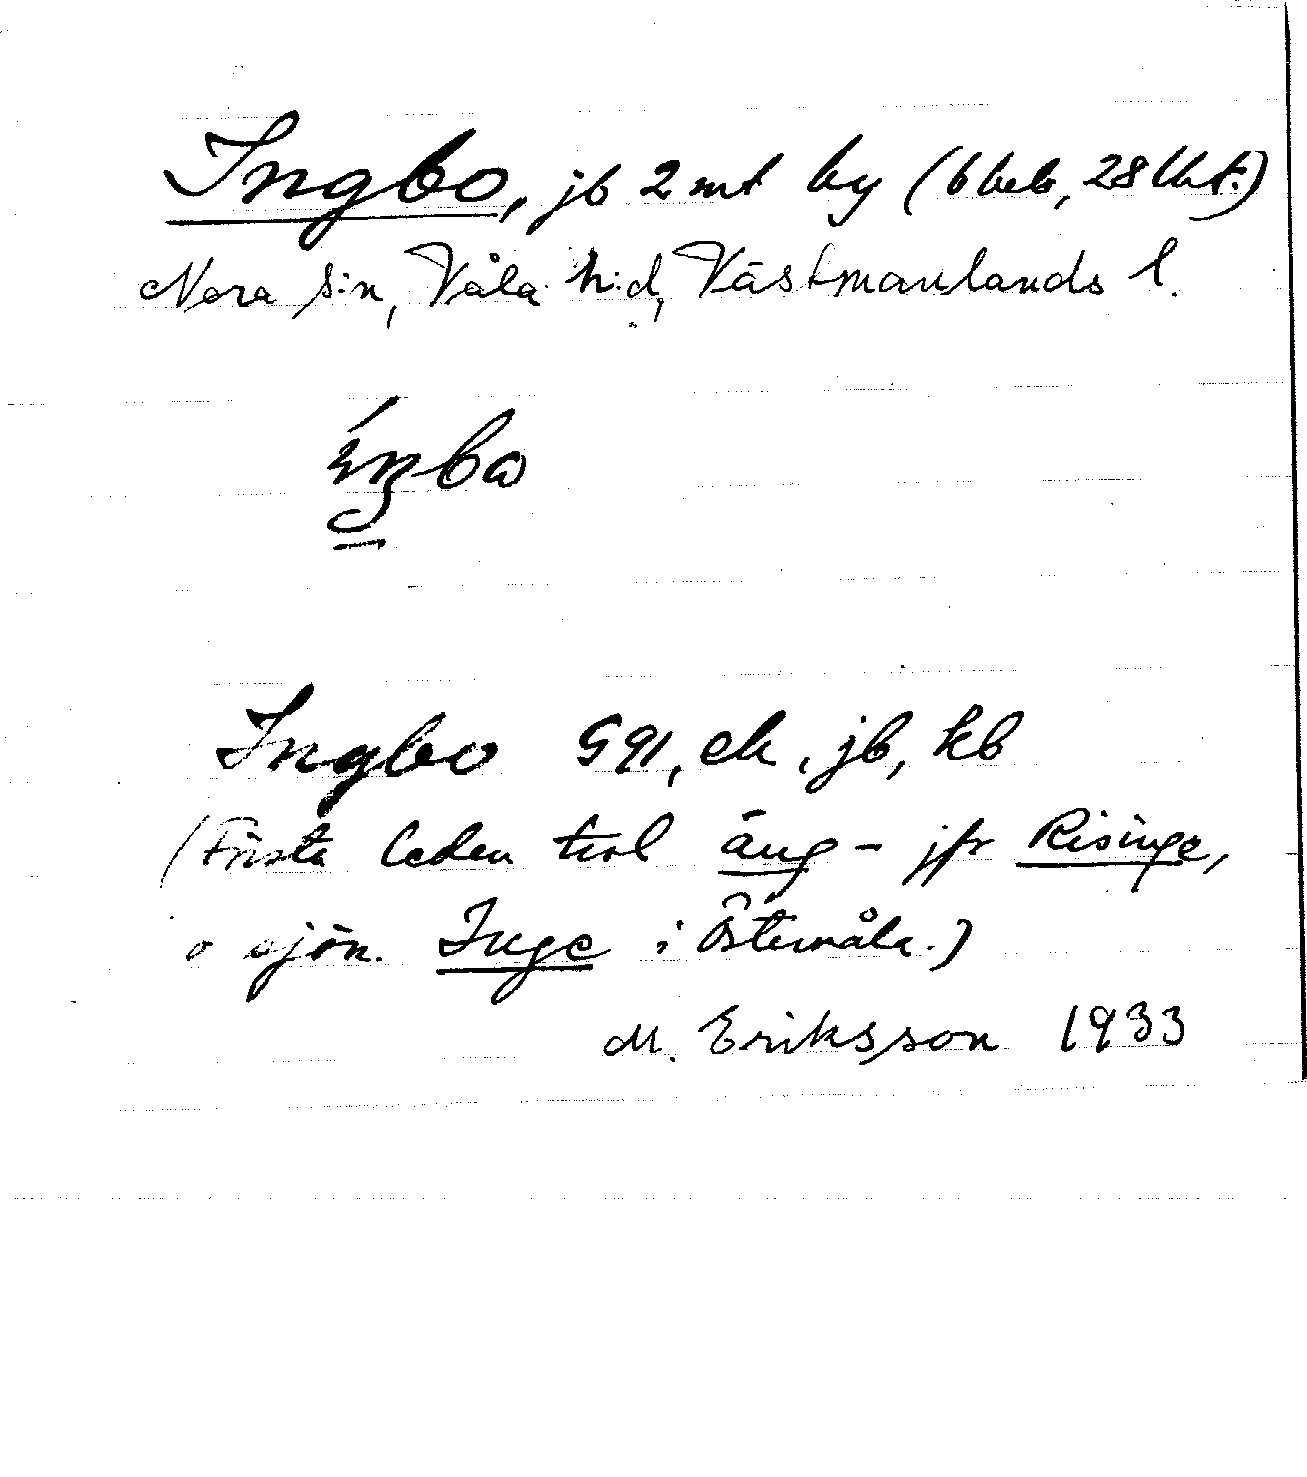 Ingbo, jb 2 mt by (6 beb, 28 lht.)
Nora s:n, Våla h:d, Västmanlands l.
Ingbo G 91, ek, jb, kb
(Första leden trol äng – jfr Risinge,
o sjön. Inge i Östervåla.)
M. Eriksson 1933